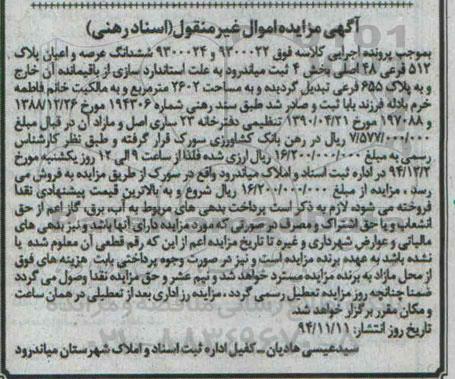 آگهی مزایده اموال غیر منقول (اسناد رهنی)
بموجب پرونده اجرایی کلاسه فوق ۹۳۰۰۰۲۲ و ۹۳۰۰۰۲۴ ششدانگ عرصه و اعیان پلاک
۵۱۲ فرعی ۴۸ اصلی بخش ۴ ثبت میاندرود به علت استاندارد سازی از باقیمانده آن خارج
و به پلاک ۶۵۵ فرعی تبدیل گردیده و به مساحت ۲۶۰۲ مترمربع و به مالکیت خانم فاطمه
خرم بادله فرزند بابا ثبت و صادر شد طبق سند رهنی شماره ۱۹۴۳۰۶ مورخ ۱۳۸۸/۱۲/۲۶
و ۱۹۷۰۸۸ مورخ ۱۳۹۰/۰۴/۲۱ تنظیمی دفترخانه ۲۳ سازی اصل و مازاد آن در قبال مبلغ
۷/۵۷۷/۰۰۰/۰۰۰ ریال در رهن بانک کشاورزی سورک قرار گرفته و طبق نظر کارشناس
رسمی به مبلغ ۱۶/۲۰۰/۰۰۰/۰۰۰ ریال ارزی شده فلذا از ساعت ۹ الی ۱۲ روز یکشنبه مورخ
۹۴/۱۲/۲ در اداره ثبت اسناد و املاک میاندرود واقع در سورک از طریق مزایده به فروش می
رسد ، مزایده از مبلغ ۱۶/۲۰۰/۰۰۰/۰۰۰ ریال شروع و به بالاترین قیمت پیشنهادی نقدا
فروخته می شود، لازم به ذکر است پرداخت بدهی های مربوط به آب، برق، گاز اعم از حق
انشعاب و یا حق اشتراک و مصرف در صورتی که مورد مزایده دارای آنها باشد و نیز بدهی های
مالیاتی و عوارض شهرداری و غیره تا تاریخ مزایده اعم از این که رقم قطعی آن معلوم شده یا
نشده باشد به عهده برنده مزایده است و نیز در صورت وجوه پرداختی بابت هزینه های فوق
از محل مازاد به برنده مزایده مسترد خواهد شد و نیم عشر و حق مزایده نقدا وصول می گردد
ضمنا چنانچه روز مزایده تعطیل رسمی گردد ، مزایده رز اداری بعد از تعطیلی در همان ساعت
و مکان مقرر برگزار خواهد شد.
تاریخ روز انتشار: ۹۴/۱۱/۱۱
سید عیسی هادیان - کفیل اداره ثبت اسناد و املاک شهرستان میاندرود